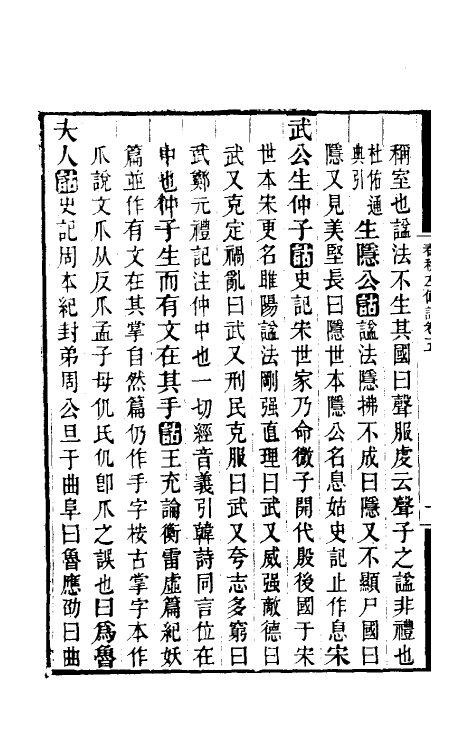 稱室也諡法不生其國曰聲服虔云聲子之諡非禮也
杜佑通
典引
生隱公詁諡法隱拂不成曰隱又不顯尸國曰
隱又見美堅長曰隱世本隱公名息姑史記止作息宋
武公生仲子詁史記宋世家乃命微子開代殷後國于宋
世本宋更名睢陽諡法剛强直理曰武又威强敵德曰
武又克定禍亂曰武又刑民克服曰武又夸志多窮曰
武鄭元禮記注仲中也一切經音義引韓詩同言位在
中也仲子生而有文在其手詁王充論衡雷虛篇紀妖
篇並作有文在其掌自然篇仍作手字按古掌字本作
爪說文爪从反爪孟子母仉氏仉卽爪之誤也曰爲魯
夫人詁史記周本紀封弟周公旦于曲阜曰魯應劭曰曲
春秋左傳詁卷五
一